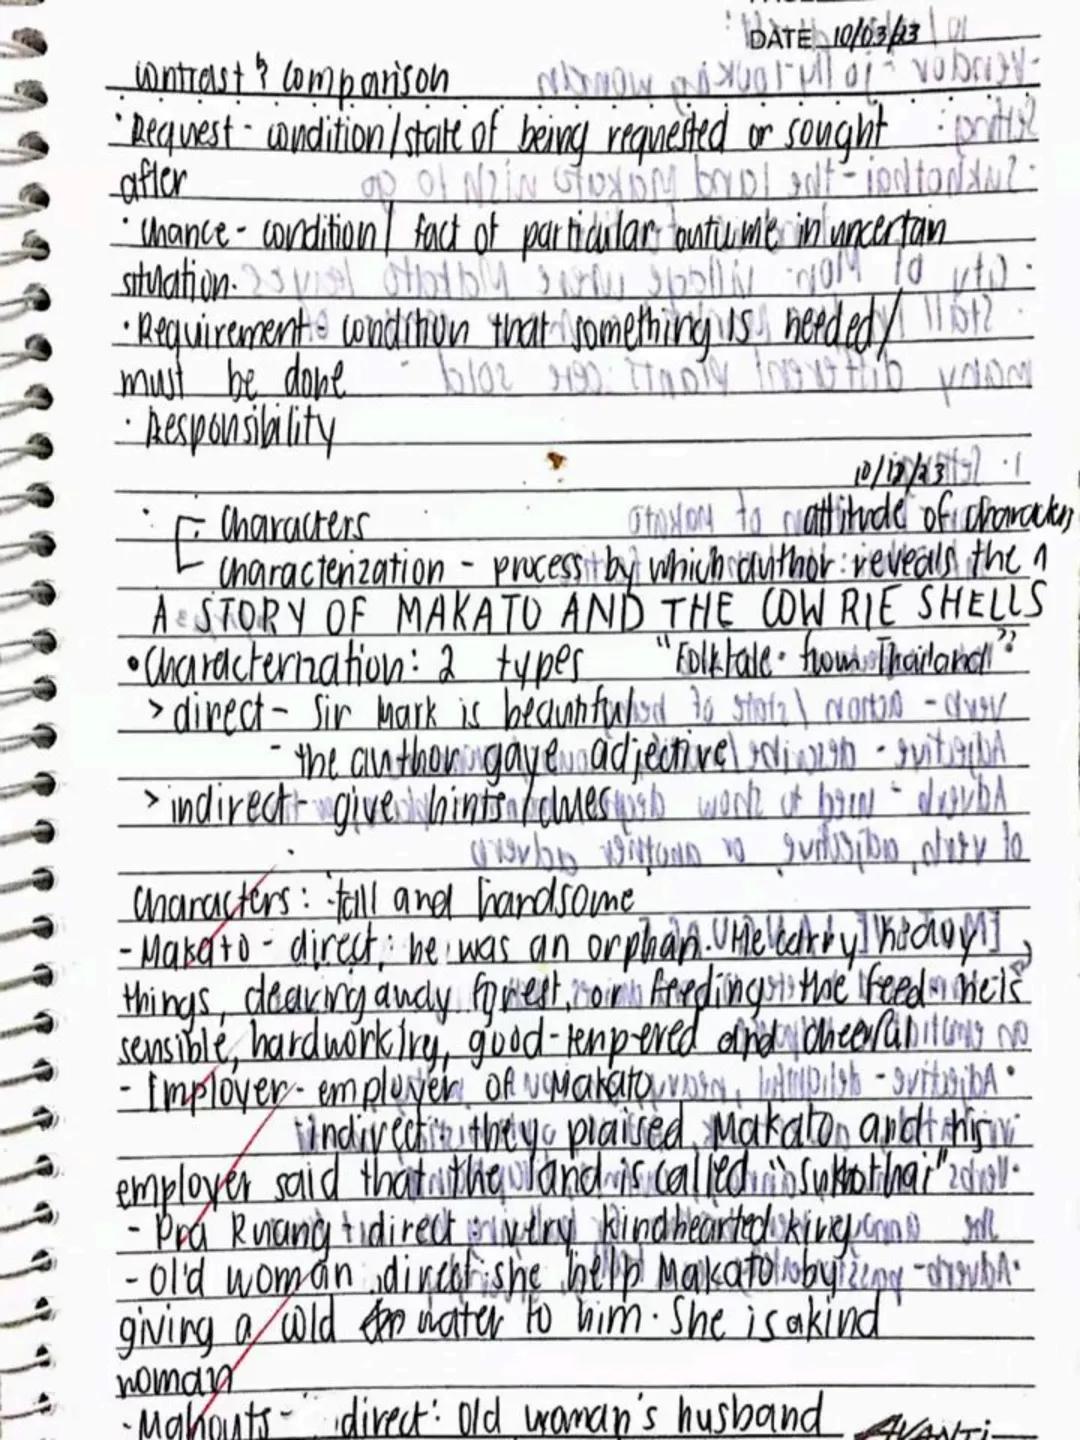 DATE 10/03/23
Contrast & Comparison
• Request - condition/state of being requested or sought
after
• Chance - condition / fact of particular outcome in uncertain
situation.
• Requirement - condition that something is needed/
must be done
• Responsibility
10/12/23
Characters
attitude of character
Characterization - process by which author reveals the ^
A STORY OF MAKATO AND THE COWRIE SHELLS
• Characterization: 2 types "Folktale from Thailand"
> direct - Sir Mark is beautiful
- the author gave adjective
> indirect - give hints / clues
Characters: tall and handsome
- Makato - direct: he was an orphan. He carry heavy
things, clearing forest, or feeding the feed. he is
sensible, hardworking, good-tempered and cheerful
- Employer - employer of Makato
indirect: they praised Makato and his
employer said that the land is called "Sukothai"
- Pra Ruang + direct: very kindhearted king
- Old woman direct: she help Makato by
giving a cold water to him. She is a kind
woman
- Mahouts - direct: Old woman's husband
AVANTi